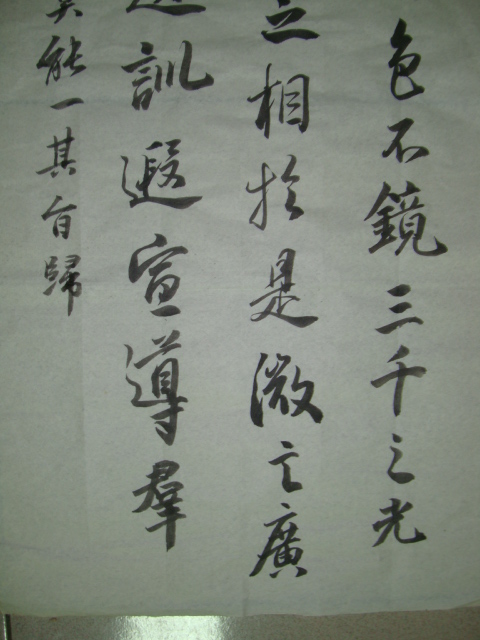 色不鏡三千之光
之相於是微言廣
訓遐宣導羣
能一其旨歸